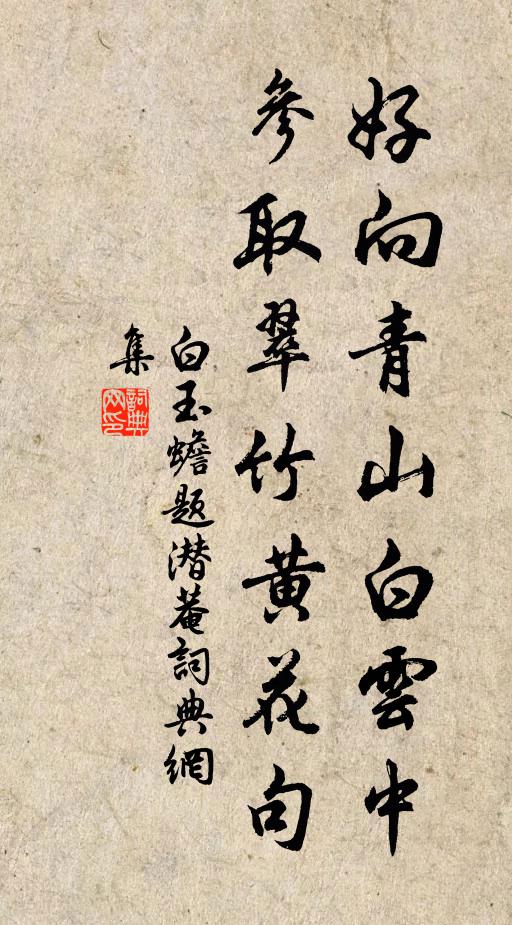 好向青山白雲中
參取翠竹黄花句
白玉蟾题潜菴詞典網
集
詞典
网印